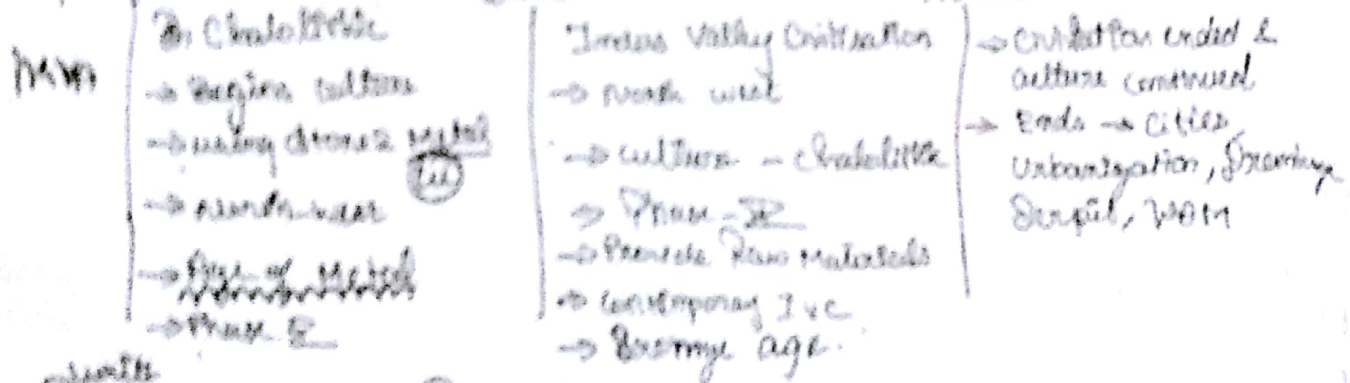 Chalolithic
→ Region culture
→ using stone & metal
Cu
→ north-west
→ Age of Metal
→ Phase II
Indus Valley Civilisation
→ North west
→ culture - chalolithic
→ Phase - II
→ Provide Raw Materials
→ Contemporary IVC
→ Bronze age.
→ Civilisation ended &
culture continued
→ Ends → Cities,
Urbanization,
Script,